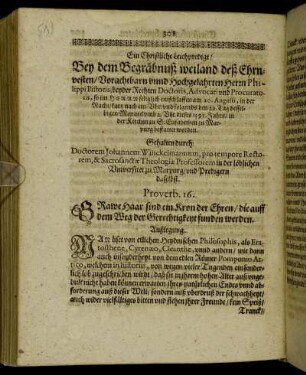 302
Ein Christliche Leichpredigt/
Bey dem Begräbniß weiland deß Ehrn-
vesten/ Vorachtbarn vnnd Hochgelahrten Herrn Phi-
lippi beyder Rechten Doctoris, Advocati vnd Procurato-
ris, so im HERRN seliglich entschlaffen am 20. Augusti, in der
Nacht/ vnd folgends den 22. Tag desse-
ligen Monats vmb 2. Vhr dieses 1595. Jahrs/ in
der Kirchen zu S. Elisabethen zu Mar-
purg
Gehalten durch
Doctorem Johannem Winckelmannum, pro tempore Recto-
rem, & Sacrosanctæ Theologiæ Professorem in der löblichen
Vniversitet zu Marpurg vnd Predigern
daselbst.
Proverb. 16.
GRawe Haar sind ein Kron der Ehren/ die auff
dem Weg der Gerechtigkeyt funden werden.
Außlegung.
MAn liset von etlichen Heydnischen Philosophis, als
Cleanthe, vnnd andern/ wie dann
auch insonderheyt von dem edlen Römer Pomponio At-
tico, welchem in historiis, von wegen vieler Tugenden
lich lob zugeschrieben wirdt/ daß sie in ihrem hohen Alter auß vnge-
dult nicht haben können erwarten ihres natürlichen Endes vnnd ab-
forderung auß dieser Welt/ sondern auß vberdruß der schwachheyt/
auch wider vielfältiges bitten vnd flehen ihrer Freunde/ kein Speiß/
Tranck/